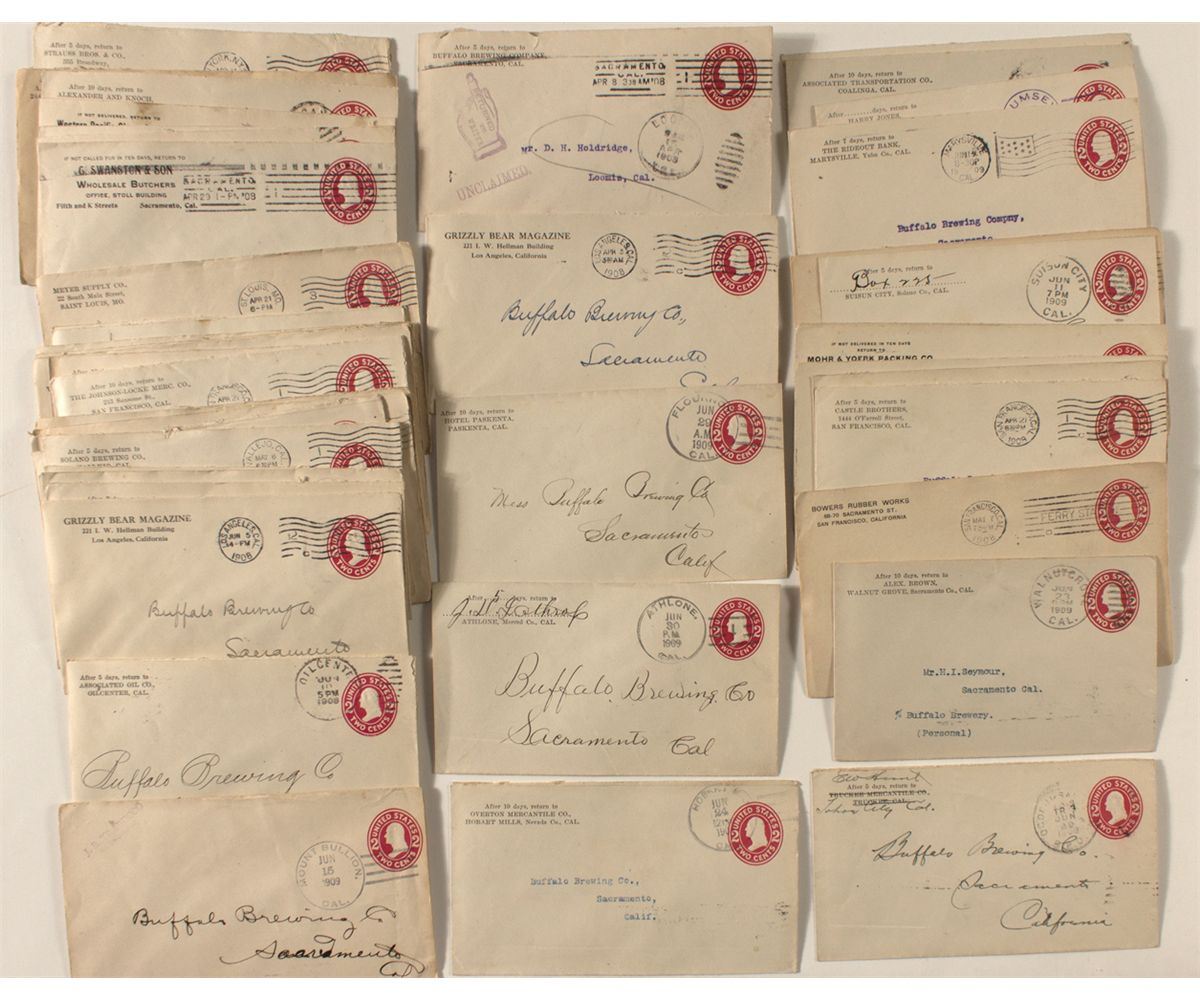 After 5 days, return to
STRAUSS BROS. & CO.,
555 Broadway,
After 10 days, return to
ALEXANDER AND KNOCH,
IF NOT DELIVERED, RETURN TO
IF NOT CALLED FOR IN TEN DAYS, RETURN TO
G. SWANSTON & SON
WHOLESALE BUTCHERS
OFFICE, STOLL BUILDING
Fifth and K Streets Sacramento, Cal.
SACRAMENTO
CAL.
APR 29 1-PM '08
UNITED STATES
2 TWO CENTS 2
MEYER SUPPLY CO.,
22 South Main Street,
SAINT LOUIS, MO.
ST. LOUIS, MO.
APR 21
6-PM
UNITED STATES
After 10 days, return to
THE JOHNSON-LOCKE MERC. CO.,
SAN FRANCISCO, CAL.
UNITED STATES
After 5 days, return to
SOLANO BREWING CO.
VALLEJO, CAL.
MAY 6
UNITED STATES
GRIZZLY BEAR MAGAZINE
221 I. W. Hellman Building
Los Angeles, California
LOS ANGELES, CAL.
JUN 5
1908
UNITED STATES
2 TWO CENTS 2
Buffalo Brewing Co
Sacramento
After 5 days, return to
ASSOCIATED OIL CO.,
OILCENTER, CAL.
OILCENTE
JUN
5 PM
1908
UNITED STATES
2 TWO CENTS 2
Buffalo Brewing Co
MOUNT BULLION,
JUN
15
1909
CAL.
UNITED STATES
2 TWO CENTS 2
Buffalo Brewing Co
Sacramento
Cal
After 5 days, return to
BUFFALO BREWING COMPANY,
SACRAMENTO, CAL.
SACRAMENTO
CAL.
APR 8 '08
UNITED STATES
2 TWO CENTS 2
1908
UNCLAIMED.
Mr. D. H. Holdridge,
Loomis, Cal.
GRIZZLY BEAR MAGAZINE
221 I. W. Hellman Building
Los Angeles, California
LOS ANGELES, CAL.
APR 5
1908
UNITED STATES
2 TWO CENTS 2
Buffalo Brewing Co.,
Sacramento
After 10 days, return to
HOTEL PASKENTA,
PASKENTA, CAL.
FLOURNOY
JUN
29
A.M.
1909
CAL.
UNITED STATES
2 TWO CENTS 2
Mess Buffalo Brewing Co
Sacramento
Calif
After 5 days, return to
ATHLONE, Merced Co., CAL.
ATHLONE,
JUN
30
P.M.
1909
CAL.
UNITED STATES
2 TWO CENTS 2
Buffalo Brewing Co
Sacramento Cal
After 10 days, return to
OVERTON MERCANTILE CO.,
HOBART MILLS, Nevada Co., CAL.
JUN
24
UNITED STATES
2 TWO CENTS 2
Buffalo Brewing Co.,
Sacramento,
Calif.
After 10 days, return to
ASSOCIATED TRANSPORTATION CO.,
COALINGA, CAL.
After days, return to
HARRY JONES,
After 7 days, return to
THE RIDEOUT BANK,
MARYSVILLE, Yuba Co., CAL.
MARYSVILLE
CAL.
UNITED STATES
2 TWO CENTS 2
Buffalo Brewing Compny,
Sacramento
After 5 days, return to
Box 225
SUISUN CITY, Solano Co., CAL.
SUISUN CITY
JUN
11
7 PM
1909
CAL.
UNITED STATES
2 TWO CENTS 2
IF NOT DELIVERED IN TEN DAYS
RETURN TO
MOHR & YOERK PACKING CO.
UNITED STATES
After 5 days, return to
CASTLE BROTHERS,
O'Farrell Street,
SAN FRANCISCO, CAL.
SAN FRANCISCO, CAL.
1909
UNITED STATES
2 TWO CENTS 2
BOWERS RUBBER WORKS
68-70 SACRAMENTO ST.
SAN FRANCISCO, CALIFORNIA
SAN FRANCISCO, CAL.
1908
FERRY STA
UNITED STATES
2 TWO CENTS 2
After 10 days, return to
ALEX. BROWN,
WALNUT GROVE, Sacramento Co., CAL.
WALNUT GRO
JUN
23
1909
CAL.
UNITED STATES
2 TWO CENTS 2
Mr.H.I.Seymour,
Sacramento Cal.
℅ Buffalo Brewery.
(Personal)
Geo Hunt
After 5 days, return to
TRUCKEE MERCANTILE CO.
TRUCKEE, CAL.
Tahoe City Cal.
UNITED STATES
2 TWO CENTS 2
Buffalo Brewing Co.
Sacramento
California